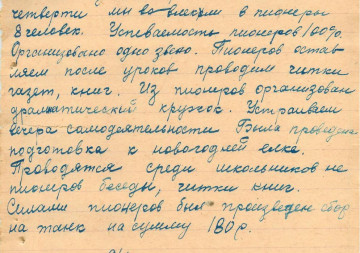 четверти мы вовлекли в пионеры
8 человек. Успеваемость пионеров 100%.
Организовано одно звено. Пионеров остав
ляем после уроков проводим читки
газет, книг. Из пионеров организован
драматический кружок. Устраиваем
вечера самодеятельности Была проведена
подготовка к новогодней елке.
Проводятся среди школьников не
пионеров беседы, читки книг.
Силами пионеров был произведен сбор
на танк на сумму 180 р.